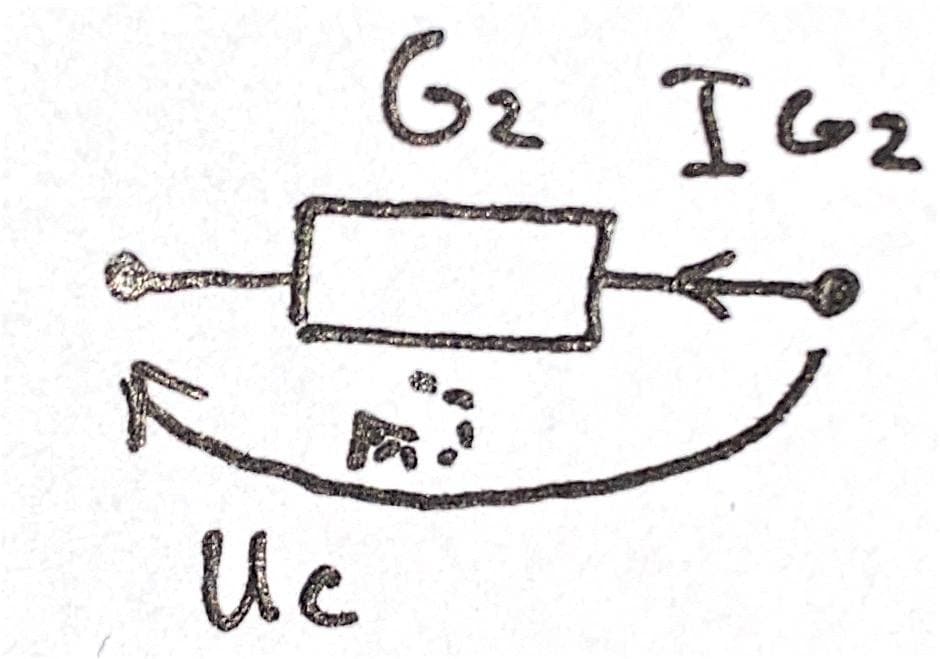 G2 IG2
Uc